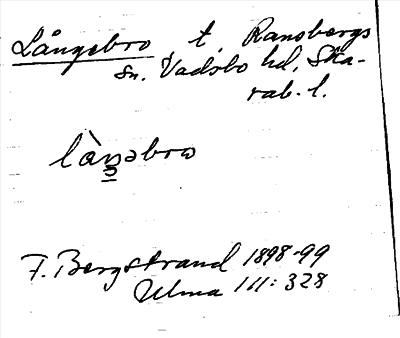 Långebro t. Ransbergs
sn. Vadsbo hd, Ska-
rab. l.
làŋəbro
F. Bergstrand 1898-99
Ulma 111: 328